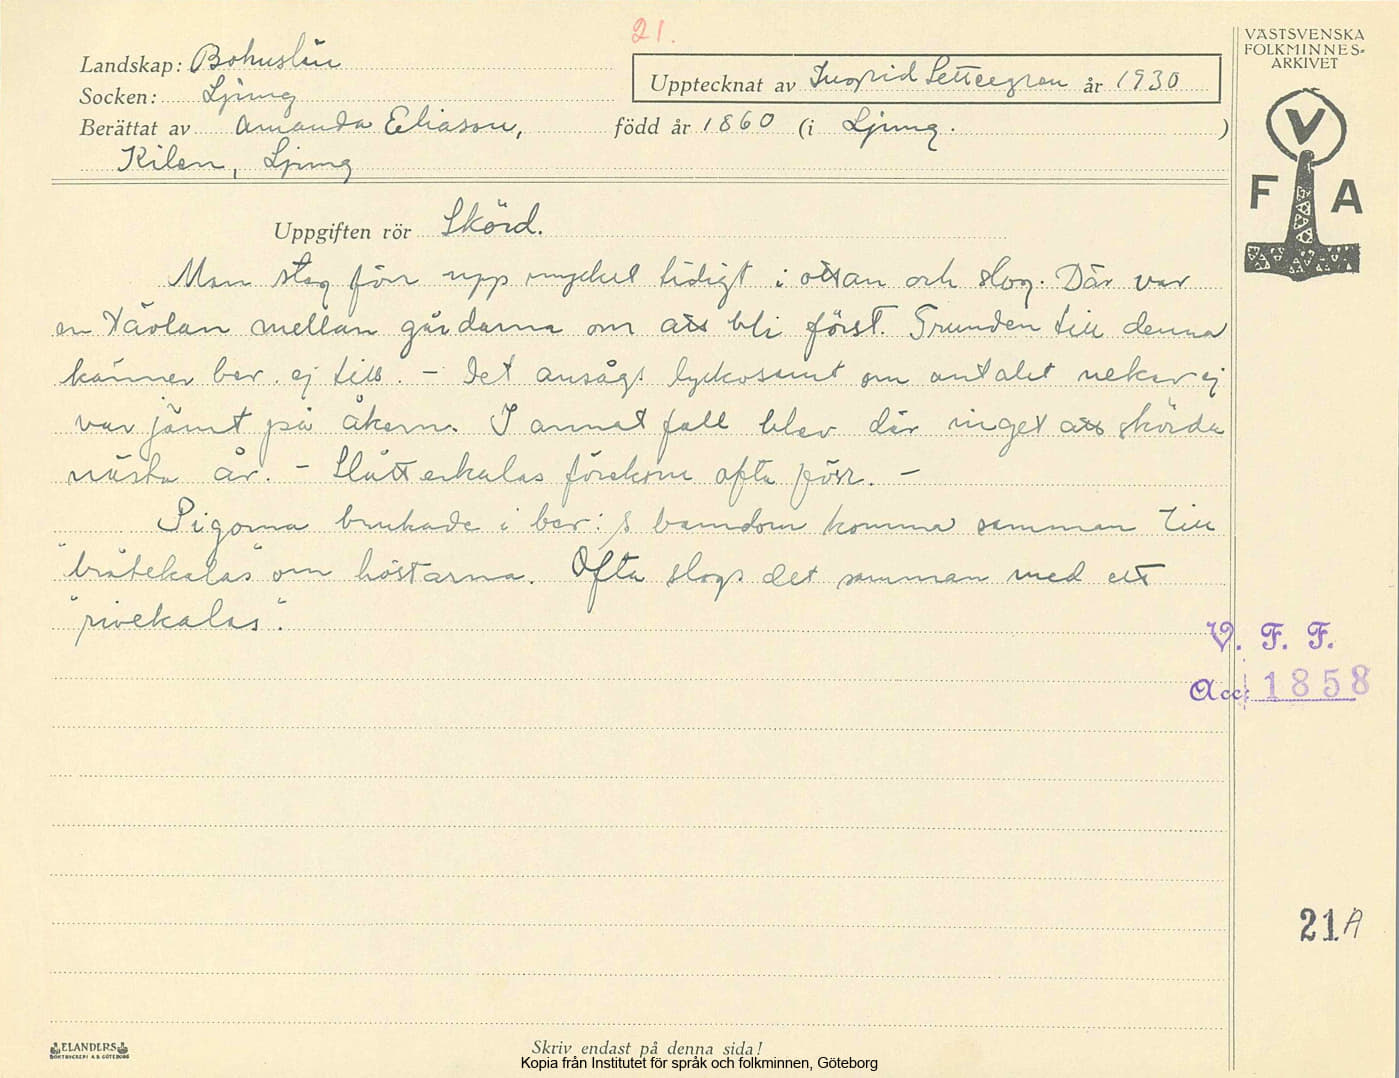 21.
VÄSTSVENSKA
FOLKMINNES-
ARKIVET
Landskap: Bohuslän
Upptecknat av Ingrid Settergren år 1930
Socken: Ljung
Berättat av Amanda Eliason, född år 1860 (i Ljung. )
Kilen, Ljung
V
F A
Uppgiften rör Skörd.
Man steg förr upp mycket tidigt i ottan och slog. Där var
en tävlan mellan gårdarna om att bli först. Grunden till denna
känner ber. ej till. – Det ansågs lyckosamt om antalet neker ej
var jämt på åkern. I annat fall blev där inget att skörda
nästa år. – Slåtterkalas förekom ofta förr. –
Pigorna brukade i ber:s barndom komma samman till
"bråtekalas" om höstarna. Ofta slogs det samman med ett
"rivekalas".
V. F. F.
Acc: 1858
21A
ELANDERS
BOKTRYCKERI A.B. GÖTEBORG
Skriv endast på denna sida!
Kopia från Institutet för språk och folkminnen, Göteborg